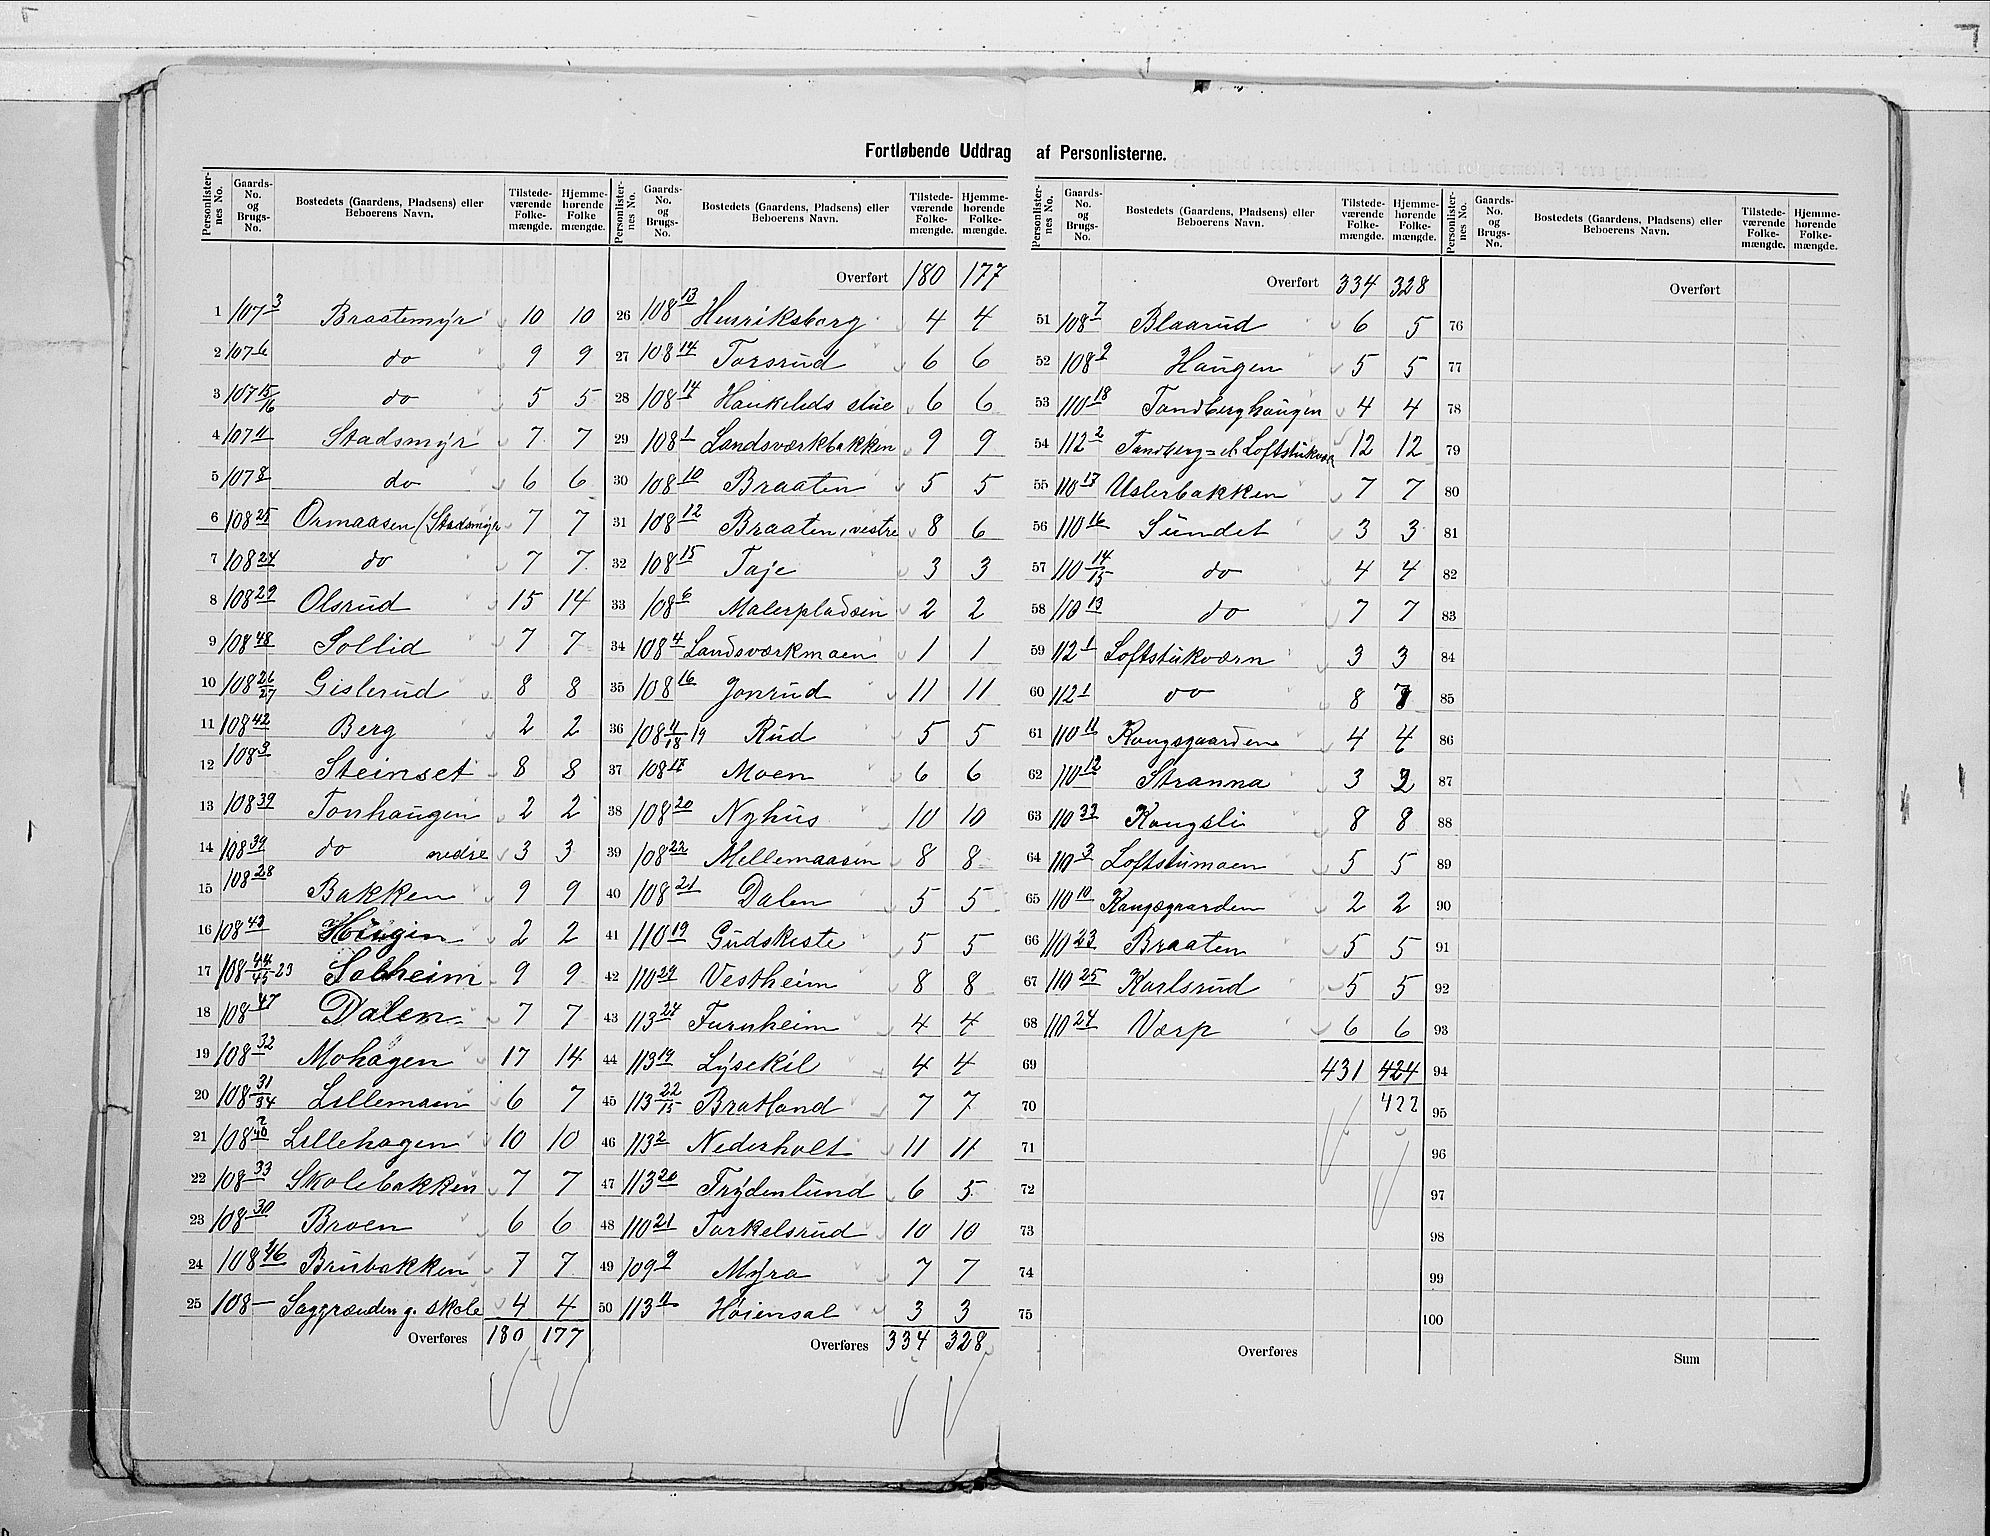 Fortløbende Uddrag af Personlisterne.
Personlisternes No. Gaards-No. og Brugs-No. Bostedets (Gaardens, Pladsens) eller Beboerens Navn. Tilstedeværende Folkemængde. Hjemmehørende Folkemængde.
1 107 3 Braatemyr 10 10
2 107 6 do 9 9
3 107 15/16 do 5 5
4 107 11 Stadsmyr 7 7
5 107 8 do 6 6
6 108 25 Ormaasen (Stadsmyr 7 7
7 108 24 do 7 7
8 108 29 Olsrud 15 14
9 108 48 Sollid 7 7
10 108 26/27 Gislerud 8 8
11 108 42 Berg 2 2
12 108 3 Steinset 8 8
13 108 39 Tonhaugen 2 2
14 108 39 do nedre 3 3
15 108 28 Bakken 9 9
16 108 43 Haugen 2 2
17 108 44/45 23 Solheim 9 9
18 108 47 Dalen 7 7
19 108 32 Mohagen 17 14
20 108 31/34 Lillemoen 6 7
21 108 2/40 Lillehagen 10 10
22 108 33 Skolebakken 7 7
23 108 30 Broen 6 6
24 108 46 Brubakken 7 7
25 108 — Saggrenden g. skole 4 4
Overføres 180 177
Personlisternes No. Gaards-No. og Brugs-No. Bostedets (Gaardens, Pladsens) eller Beboerens Navn. Tilstedeværende Folkemængde. Hjemmehørende Folkemængde.
Overført 180 177
26 108 13 Henriksborg 4 4
27 108 14 Torsrud 6 6
28 108 14 Haukelids stue 6 6
29 108 1 Landsværkbakken 9 9
30 108 10 Braaten 5 5
31 108 12 Braaten, vestre 8 6
32 108 15 Taje 3 3
33 108 6 Malerpladsen 2 2
34 108 4 Landsværkmoen 1 1
35 108 16 Jonrud 11 11
36 108 11/18 19 Rud 5 5
37 108 17 Moen 6 6
38 108 20 Nyhus 10 10
39 108 22 Mellemaasen 8 8
40 108 21 Dalen 5 5
41 110 19 Gudskiste 5 5
42 110 29 Vestheim 8 8
43 113 27 Furuheim 4 4
44 113 19 Lysekil 4 4
45 113 22/15 Bratland 7 7
46 113 2 Nederholt 11 11
47 113 20 Frydenlund 6 5
48 110 21 Torkelsrud 10 10
49 109 9 Myra 7 7
50 113 11 Høiensal 3 3
Overføres 334 328
Personlisternes No. Gaards-No. og Brugs-No. Bostedets (Gaardens, Pladsens) eller Beboerens Navn. Tilstedeværende Folkemængde. Hjemmehørende Folkemængde.
Overført 334 328
51 108 7 Blaarud 6 5
52 108 9 Haugen 5 5
53 110 18 Tandberghaugen 4 4
54 112 2 Tandberg= el. Loftstukværn 12 12
55 110 17 Uslerbakken 7 7
56 110 16 Sundet 3 3
57 110 14/15 do 4 4
58 110 13 do 7 7
59 112 1 Loftstukværn 3 3
60 112 1 do 8 7
61 110 11 Kongsgaarden 4 4
62 110 12 Stranna 3 2
63 110 33 Kongsli 8 8
64 110 3 Loftstumoen 5 5
65 110 10 Kongsgaarden 2 2
66 110 23 Braaten 5 5
67 110 25 Karlsrud 5 5
68 110 24 Værp 6 6
69 431 424
70 422
71
72
73
74
75
Overføres
Personlisternes No. Gaards-No. og Brugs-No. Bostedets (Gaardens, Pladsens) eller Beboerens Navn. Tilstedeværende Folkemængde. Hjemmehørende Folkemængde.
Overført
76
77
78
79
80
81
82
83
84
85
86
87
88
89
90
91
92
93
94
95
96
97
98
99
100
Sum